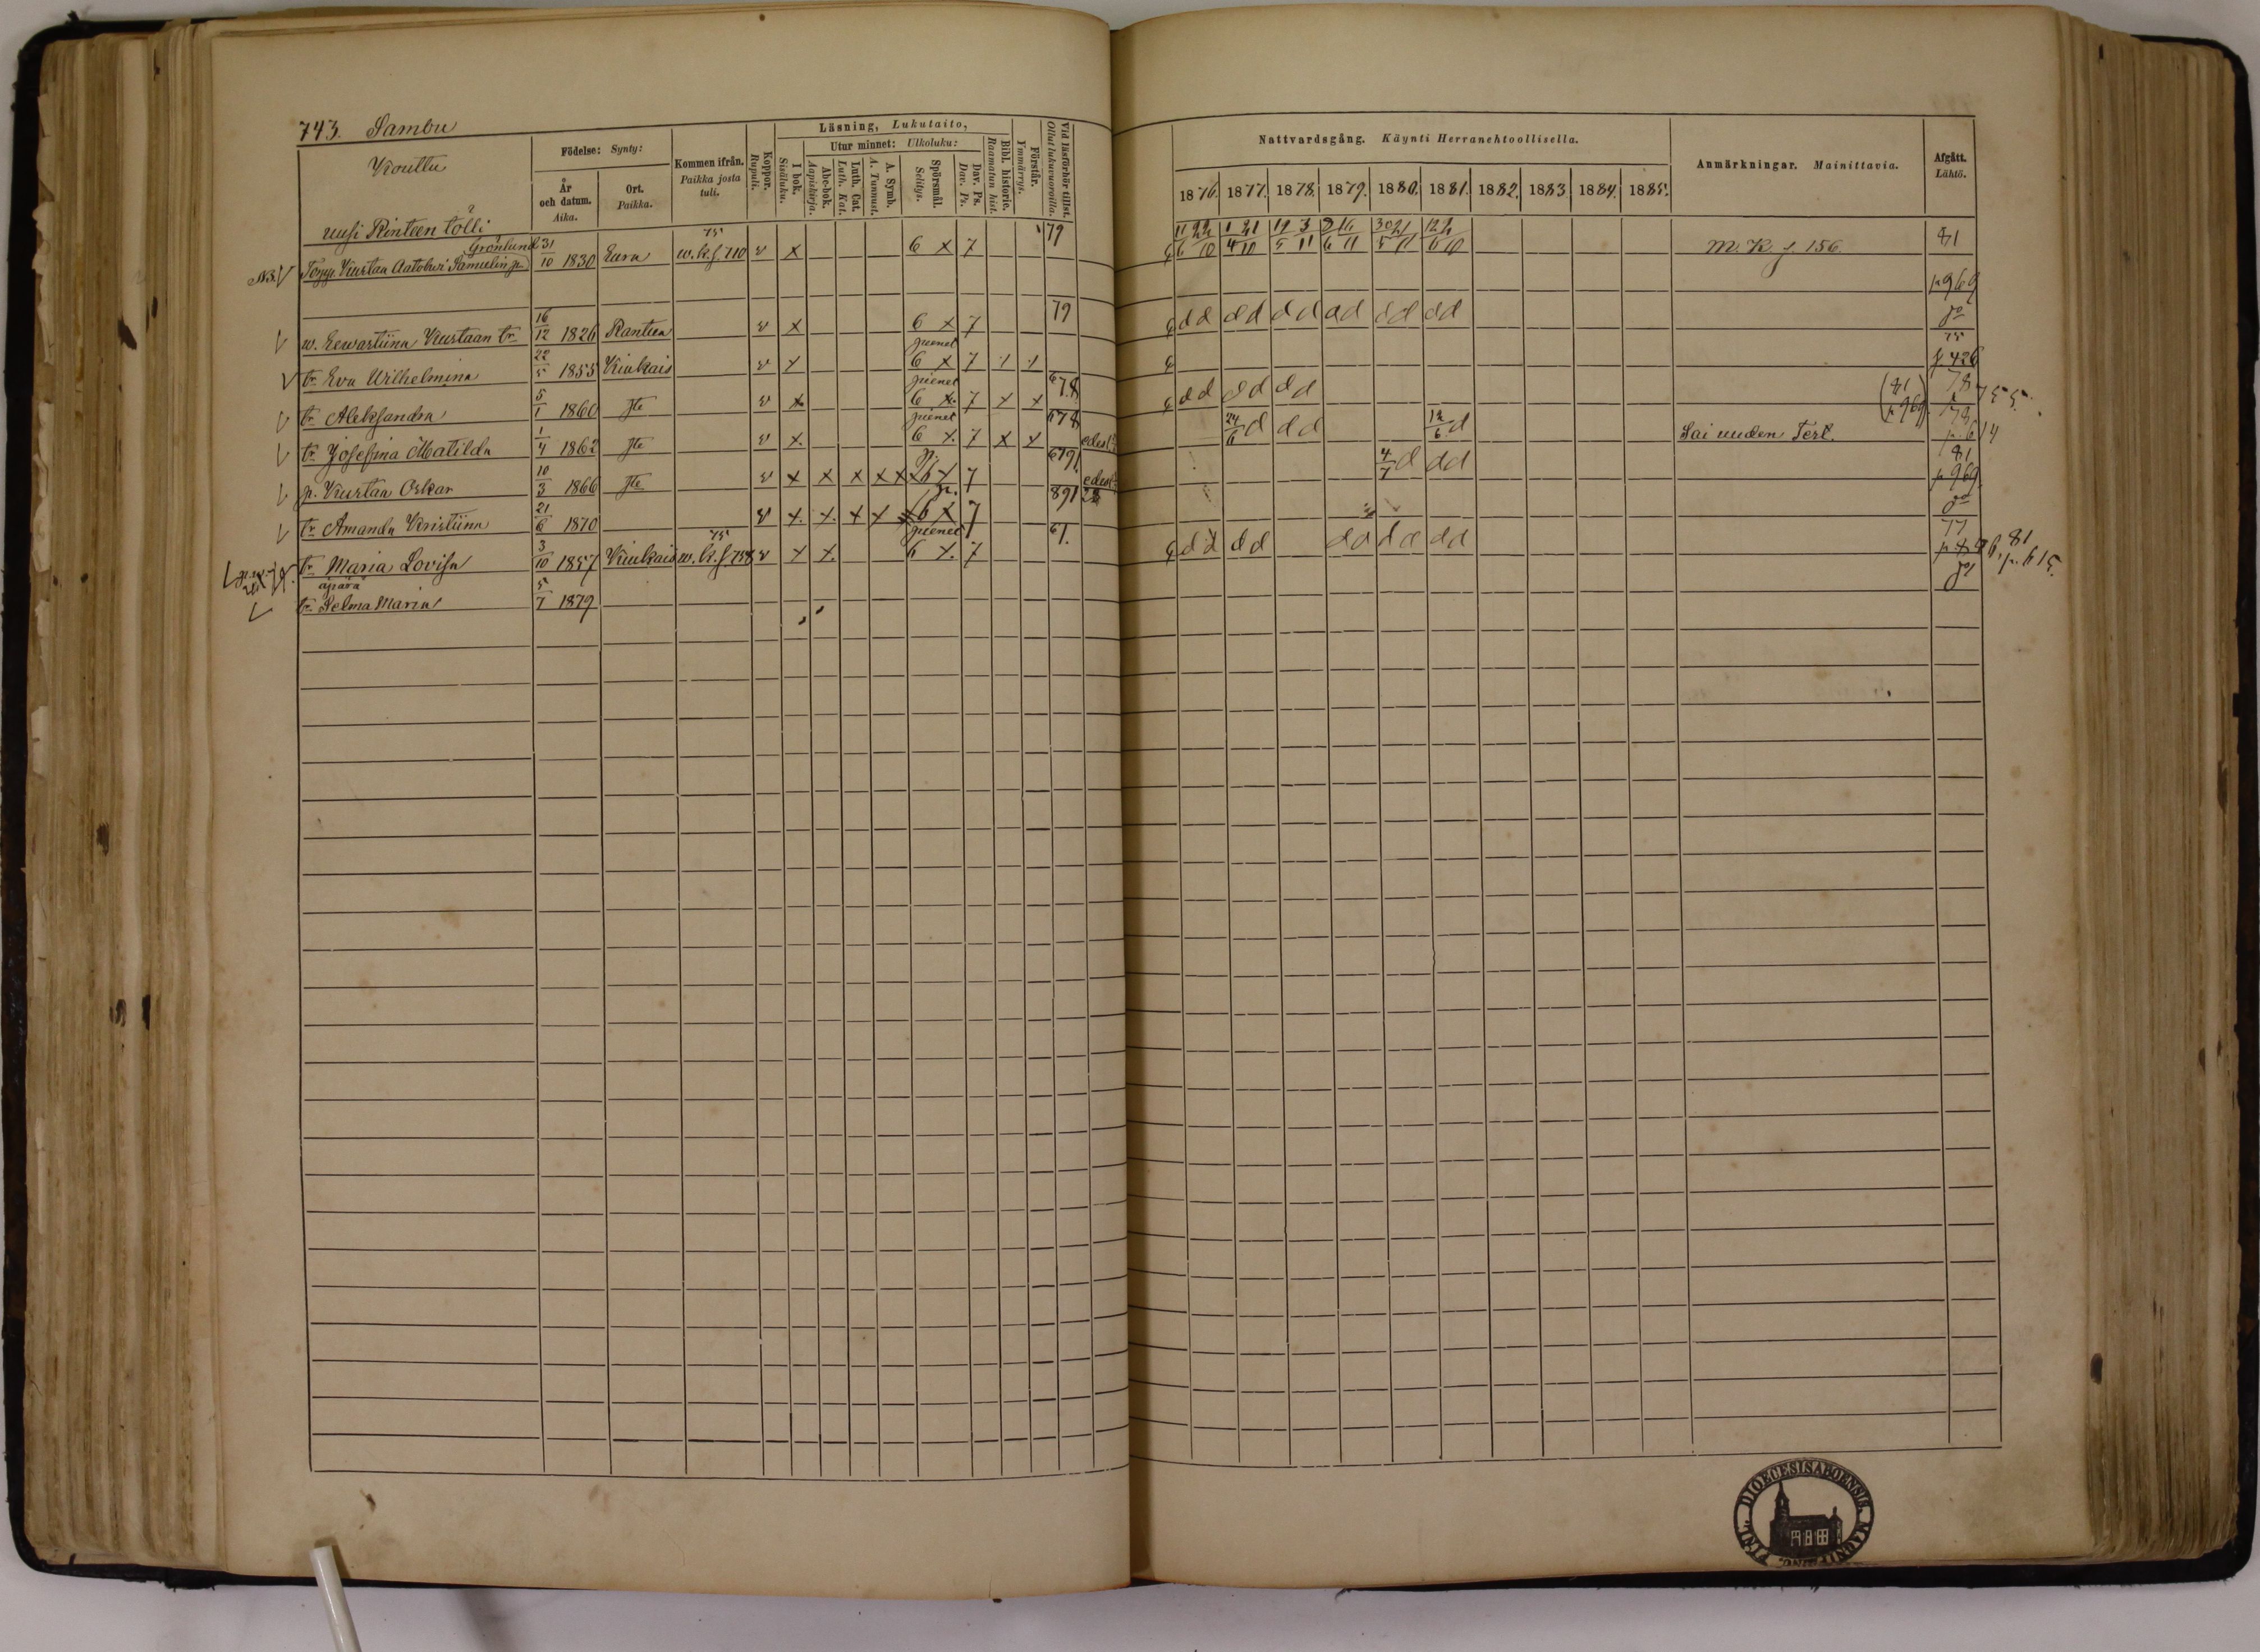 743. Sambu
Kouttu
uusi Rinteen tölli
Födelse: Synty:
År och datum. Aika.
Ort. Paikka.
Kommen ifrån. Paikka josta tuli.
Koppor. Rupuli.
Läsning, Lukutaito,
I bok. Sisäluku.
Utur minnet: Ulkoluku:
Abc-bok. Aapiskirja.
Luth. Cat. Luth. Kat.
A. Symb. A. Tunnust.
Spörsmål. Selitys.
Dav. Ps. Dav. Ps.
Bibl. historie. Raamatun hist.
Förstår. Ymmärrys.
Vid läsförhör tillst. Ollut lukuvuorovilla.
Nattvardsgång. Käynti Herranehtoollisella.
1876. 1877. 1878. 1879. 1880. 1881. 1882. 1883. 1884. 1885.
Anmärkningar. Mainittavia.
Afgått. Lähtö.
Grönlund
Kustaa Aatolwi Samuelin p. 31/10 1830 Eura 75 w.k.s. 710 v x 6 x 7 79 11/6 22/10 1/4 21/10 19/5 3/11 16/11 30/5 21/11 12/6 M. K. s. 156. 81
p 969
w. Eewastiina Kustaan tr. 16/12 1826 v x 6 x 7 79 dd dd dd dd dd dd
tr. Eva Wilhelmina 22/5 1855 Kiukais v x pienet 6 x 7 75 s. 426
tr. Aleksandra 5/1 1860 Jte v x pienet 6 x. 7 x x 678 dd dd dd (81 p 969) 78 p 755.
tr. Josefina Matilda 1/4 1862 Jte v x. pienet 6 x. 7 x x 678 24/6 d dd 12/6 d Sai uuden Test. 78 p. 614
p. Kustaa Oskar 10/3 1866 Jte v x x x x 7 679 4/7 d dd 81 p 969
tr. Amanda Kristiina 21/6 1870 v x. x. x x 6 x 7 891
tr. Maria Lovisa 3/10 1857 Kiukais 75 w.k.s. v x x. pienet 6 x. 7 dd dd dd dd dd 77 81 p. 615.
äpärä
tr. Selma Maria 5/7 1879
DIOECESIS ABOENSIS